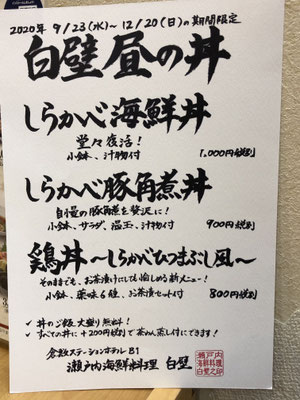 2020年 9/23(水)～12/20(日)の期間限定
白壁昼の丼
しらかべ海鮮丼
堂々復活!
小鉢、汁物付
1,000円税別
しらかべ豚角煮丼
自慢の豚角煮を贅沢に!
小鉢、サラダ、温玉、汁物付
900円税別
鶏丼～しらかべひつまぶし風～
そのままでも、お茶漬けにしても愉しめる新メニュー!
小鉢、薬味6種、お茶漬セット付
800円税別
✓ 丼のご飯大盛り無料!
✓ すべての丼に+200円税別で茶わん蒸し付にできます!
倉敷ステーションホテルB1
瀬戸内海鮮料理 白壁
瀬戸内
海鮮料理
白壁之印